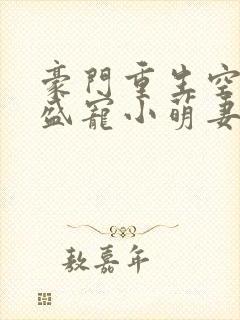 豪門重生空
盛寵小萌妻
敖嘉年